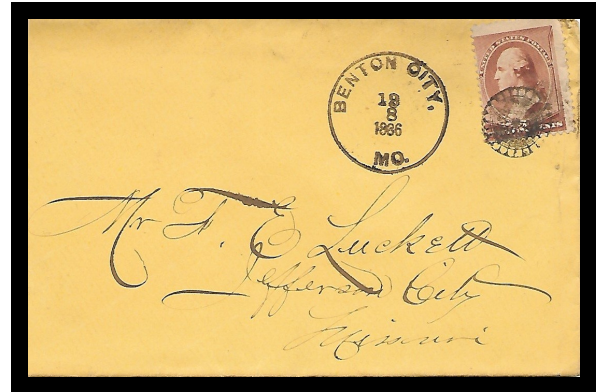 BENTON CITY,
19
8
1886
MO.
UNITED STATES POSTAGE
Mr F. E Luckett
Jefferson City
Missouri